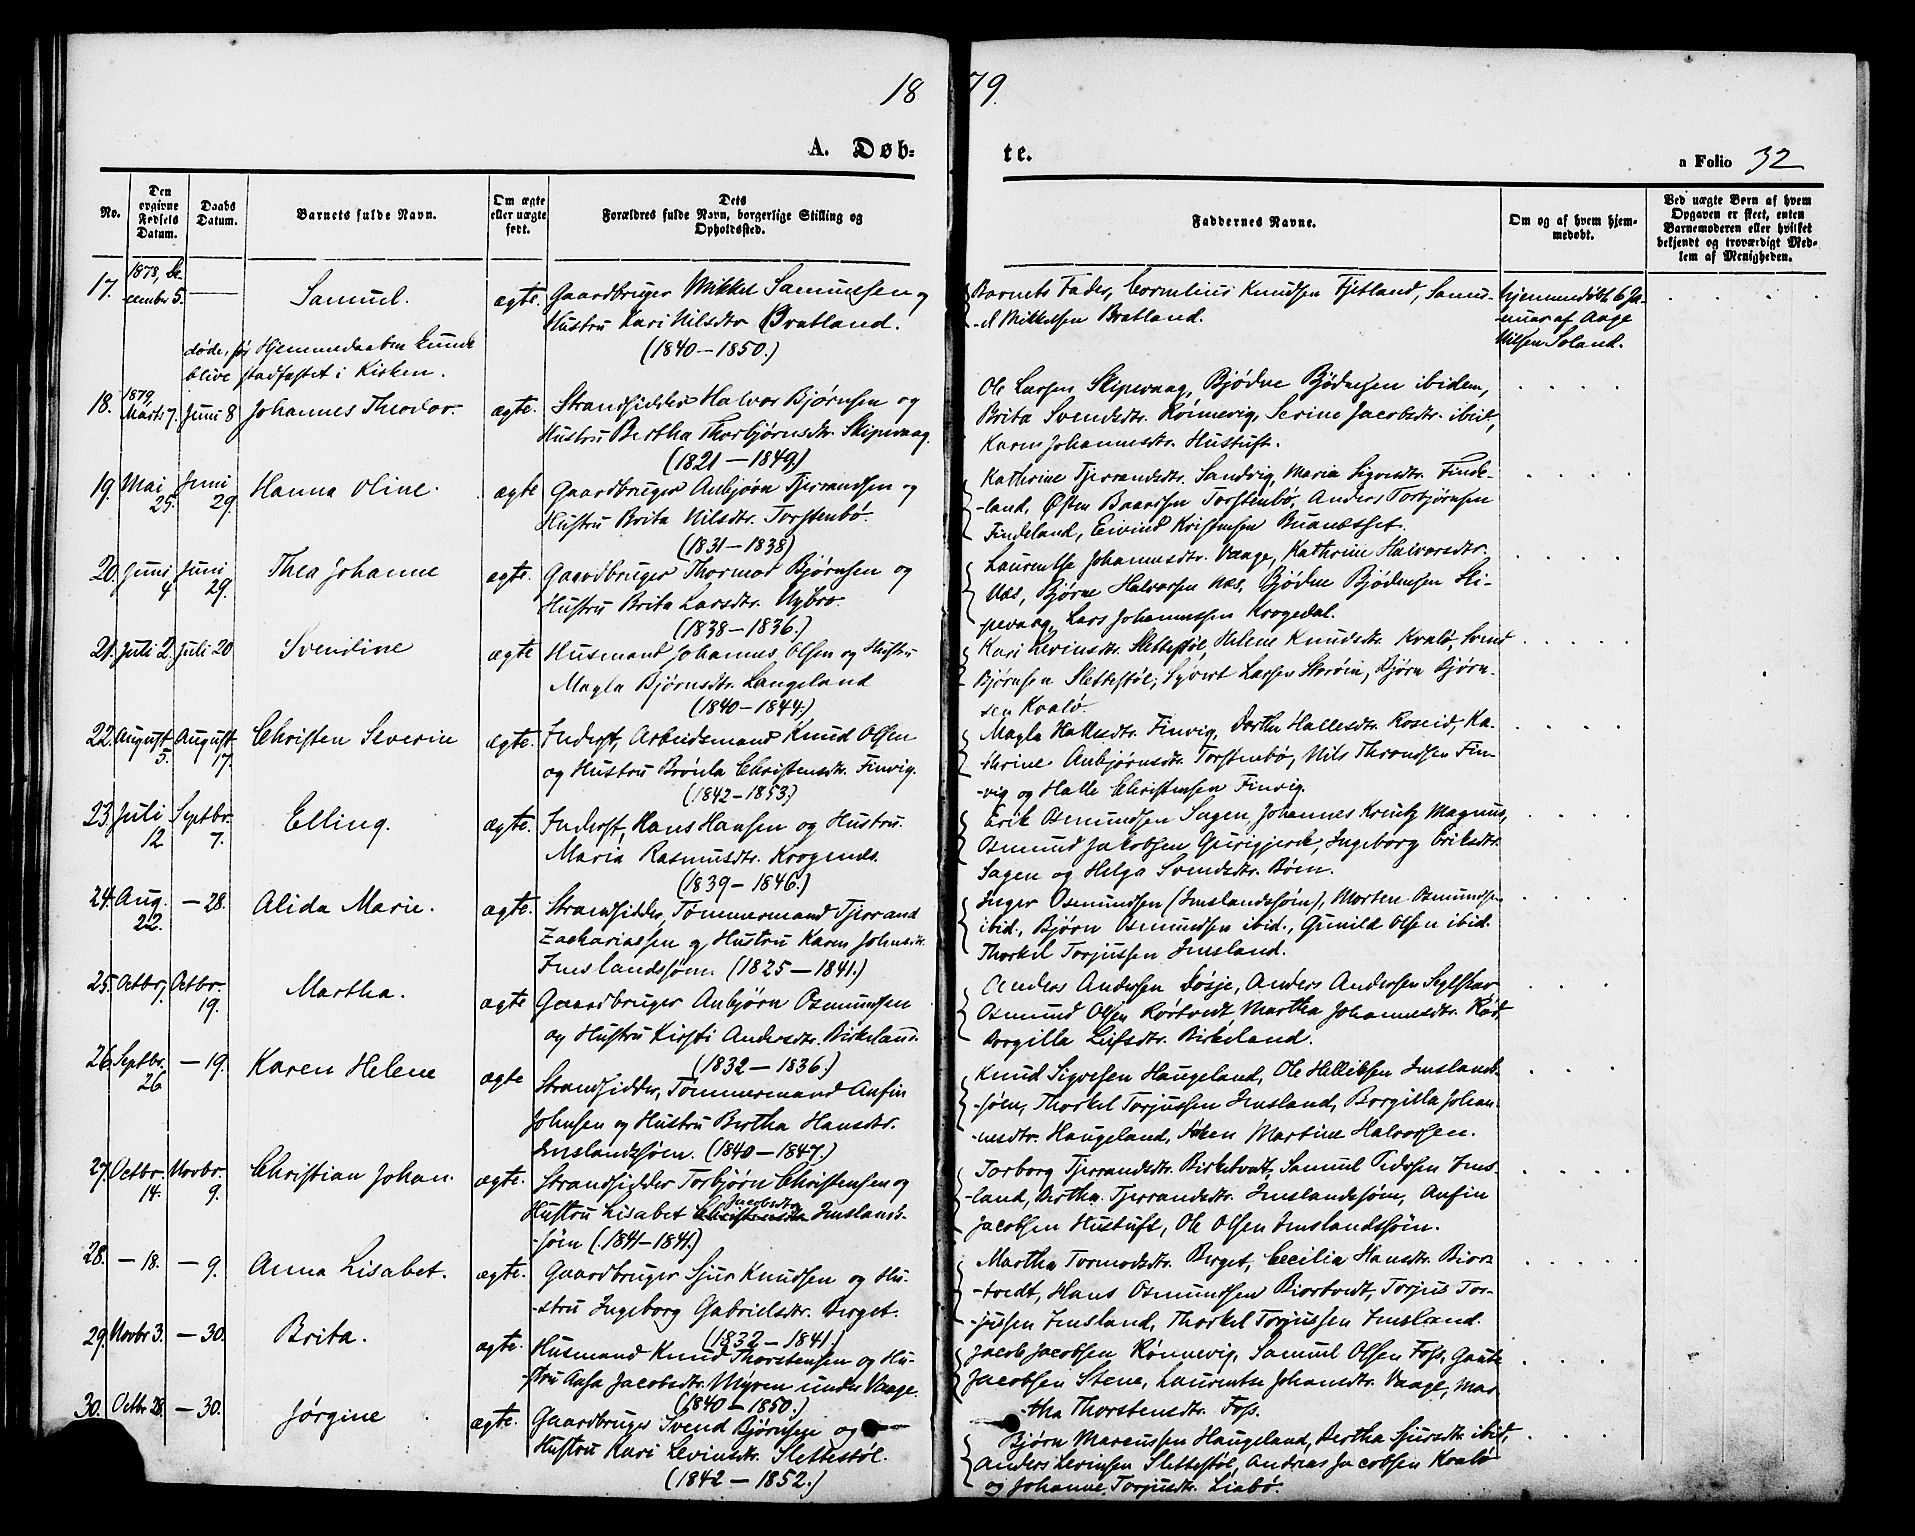 1879.
A. Døbte.
a Folio 32
No.
Den opgivne Fødsels Datum.
Daabs Datum.
Barnets fulde Navn.
Om ægte eller uægte født.
Dets Forældres fulde Navn, borgerlige Stilling og Opholdssted.
Faddernes Navne.
Om og af hvem hjemmedøbt.
Ved uægte Børn af hvem Opgaven er skeet, enten Barnemoderen eller hvilket bekjendt og troværdigt Medlem af Menigheden.
17. 1878, December 5. — Samuel. ægte.
Gaardbruger Mikkel Samuelsen og
Hustru Kari Nilsdtr Bratland.
(1840–1850.)
døde, før Hjemmedaaben kunde
blive stadfæstet i Kirken.
Barnets Fader, Cornelius Knudsen Fjetland, Samu-
-el Mikkelsen Bratland.
hjemmedøbt 6 Ja-
nuar af Aage
Nilsen Soland.
18. 1879, Marts 7. Juni 8 Johannes Theodor. ægte.
Strandsidder Halvor Bjørnsen og
Hustru Bertha Thorbjørnsdtr. Skipevaag.
(1821–1849)
Ole Larsen Skipevaag, Bjødne Bjødnesen ibidem,
Brita Svendsdtr. Rönnevig, Serine Jacobsdtr. ibid,
Karen Johannesdtr. Hustuft.
19. Mai 25. Juni 29. Hanna Oline. ægte
Gaardbruger Anbjørn Tjerrandsen og
Hustru Brita Nilsdtr. Torstenbø.
(1831–1838)
Kathrine Tjerrandsdtr. Sandvig, Maria Sigvesdtr. Finde-
-land, Østen Baardsen Torstenbø, Anders Torbjørnsen
Findeland, Eivind Kristensen Buanæsset.
20. Juni 4. Juni 29. Thea Johanne ægte.
Gaardbruger Thormod Bjørnsen og
Hustru Brita Larsdtr. Nybro.
(1838–1836.)
Laurentse Johannesdtr. Vaage, Kathrine Halvorsdtr.
Næs, Bjørne Halvorsen Næs, Bjødne Bjødnesen Ski-
pevaag, Lars Johannessen Krogedal.
21. Juli 2. Juli 20 Svendine ægte
Husmand Johannes Olsen og Hustru
Magla Bjørnsdtr. Langeland
(1840–1844.)
Kari Levinsdtr. Slettestøl, Helene Knudsdtr. Kvalö, Svend
Bjørnsen Slettestøl, Syvert Larsen Skeröin, Bjørn Bjørn-
sen Kvalö.
22. August 5. August 17. Christen Severin ægte.
Inderst, Arbeidsmand Knud Olsen
og Hustru Brönla Christensdtr. Finvig.
(1842–1853)
Magla Hallesdtr. Finvig, Dorthe Hallesdtr. Roseid, Ka-
thrine Anbjørnsdtr. Torstenbø, Nils Throndsen Fin-
-vig og Halle Christensen Finvig.
23. Juli 12 Septbr. 7. Elling. ægte.
Inderst, Hans Hansen og Hustru
Maria Rasmusdtr. Krogenæs.
(1839–1846.)
Erik Osmundsen Sagen, Johannes Kreutz Magnus,
Osmund Jakobsen Gurigjerde, Ingeborg Eriksdtr.
Sagen og Helga Svendsdtr. Böen.
24. Aug. 22. — 28. Alida Marie. ægte.
Strandsidder, Tømmermand Tjerrand
Zachariassen og Hustru Karen Johnsdtr.
Imslandssjøen. (1825–1841.)
Inger Osmundsen (Imslandssjøen), Morten Osmundsen
ibid., Bjørn Osmundsen ibid., Gunild Olsen ibid.
Thorkel Torjussen Imsland.
25. Octbr. 7. Octbr. 19. Martha. ægte
Gaardbruger Anbjørn Osmundsen
og Hustru Kirsti Andersdtr. Birkeland.
(1832–1836.)
Anders Andersen Døsje, Anders Andersen
Osmund Olsen Rörtvedt, Martha Johannesdtr.
Borgilla Leifsdtr. Birkeland.
26. Septbr. 26 — 19. Karen Helene ægte
Strandsidder, Tømmermand Anfin
Johnsen og Hustru Bertha Hansdtr.
Imslandssjøen. (1840–1847.)
Knud Sigvesen Haugeland, Ole Helliksen Imslands-
-sjøen, Thorkel Torjussen Imsland, Borgilla Johan-
-nesdtr. Haugeland, Martine Halvorsen.
27. Octbr. 14. Novbr. 9. Christian Johan. ægte.
Strandsidder Torbjørn Christensen og
Hustru Lisabet Jacobsdtr Imslands-
-sjøen (1841–1841.)
Torborg Tjerrandsdtr. Birketvedt, Samuel Pedersen Ims-
-land, Bertha Tjerrandsdtr. Imslandssjøen, Anfin
Jacobsen Hustuft, Ole Olsen Imslandssjøen.
28. — 18. — 9. Anna Lisabet. ægte.
Gaardbruger Sjur Knudsen og Hu-
-stru Ingeborg Gabrielsdtr. Berget.
(1832–1841.)
Martha Tormodsdtr. Berget, Cecilia Hansdtr. Bior-
-tvedt, Hans Osmundsen Biortvedt, Torjus Tor-
-jussen Imsland, Thorkel Torjussen Imsland.
29. Novbr 3. — 30. Brita. ægte.
Husmand Knud Thorstensen og Hu-
-stru Aasa Jacobsdtr. Myren under Vaage.
(1840–1850.)
Jacob Jacobsen Rønnevig, Samuel Olsen Foss, Gaute
Jacobsen Stene, Laurentse Johansdtr. Vaage, Mar-
-tha Thorstensdtr. Foss.
30. Octbr 28. — 30. Jørgine ægte.
Gaardbruger Svend Bjørnsen og
Hustru Kari Levinsdtr. Slettestøl.
(1842–1852.)
Bjørn Marcussen Haugeland, Bertha Sjursdtr. ibid,
Anders Levinsen Slettestøl, Andreas Jacobsen Kvalö
og Johanne Torjusdtr. Liabø.